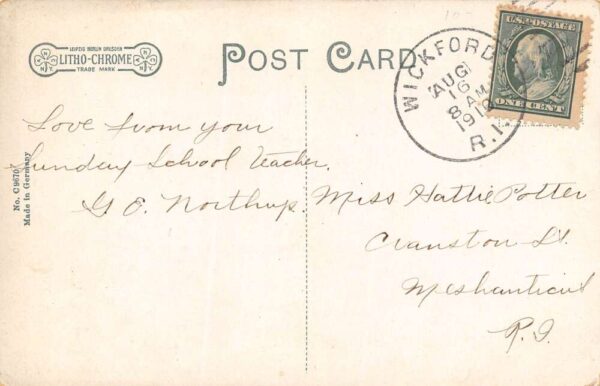 LEIPZIG BERLIN DRESDEN
LITHO-CHROME
TRADE MARK
N Y
POST CARD
WICKFORD
AUG
16
8 AM
R.I.
U.S. POSTAGE
ONE CENT
Love from your
Sunday School Teacher.
G E. Northup.
Miss Hattie Potter
Cranston St.
Meshanticut
R.I.
No. C9670
Made in Germany